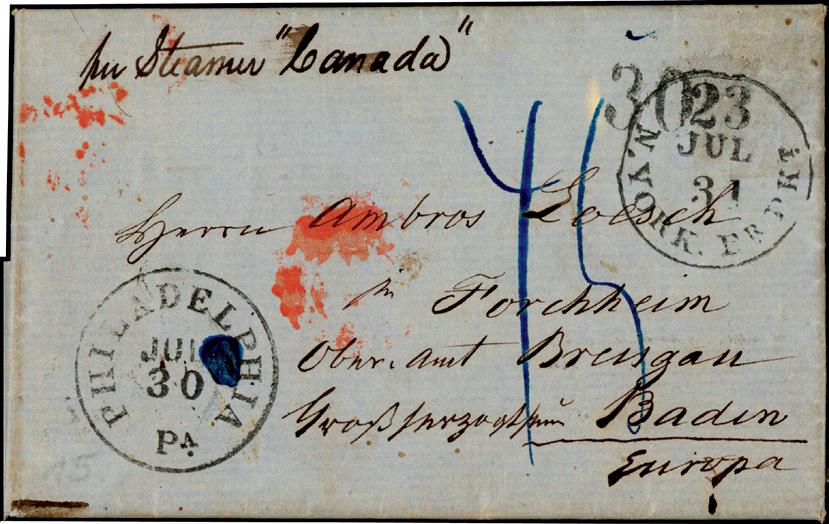 per Steamer "Canada"
30
23
JUL
31
N. YORK. BR PKT
45
Herrn Ambros Loesch
in Forchheim
Ober.amt Breisgau
Großherzogthum Baden
Europa
PHILADELPHIA
JUL
30
PA